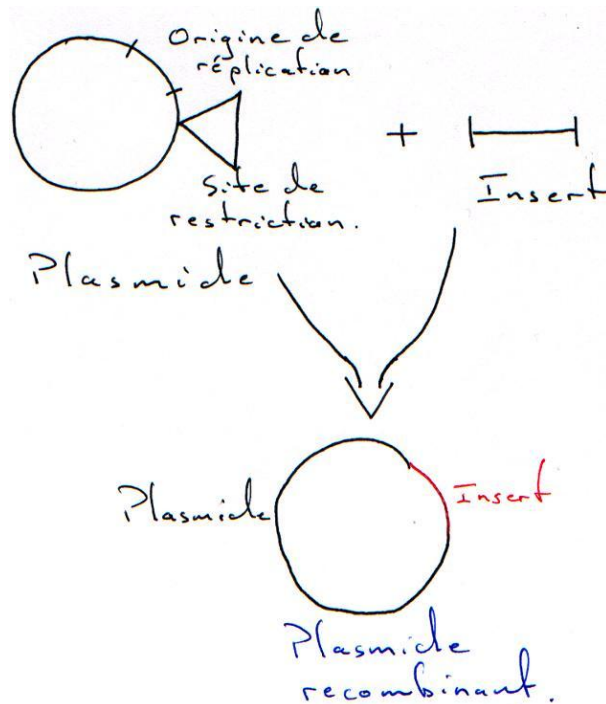 Origine de
réplication
+
Insert
Site de
restriction.
Plasmide
Plasmide
Insert
Plasmide
recombinant.